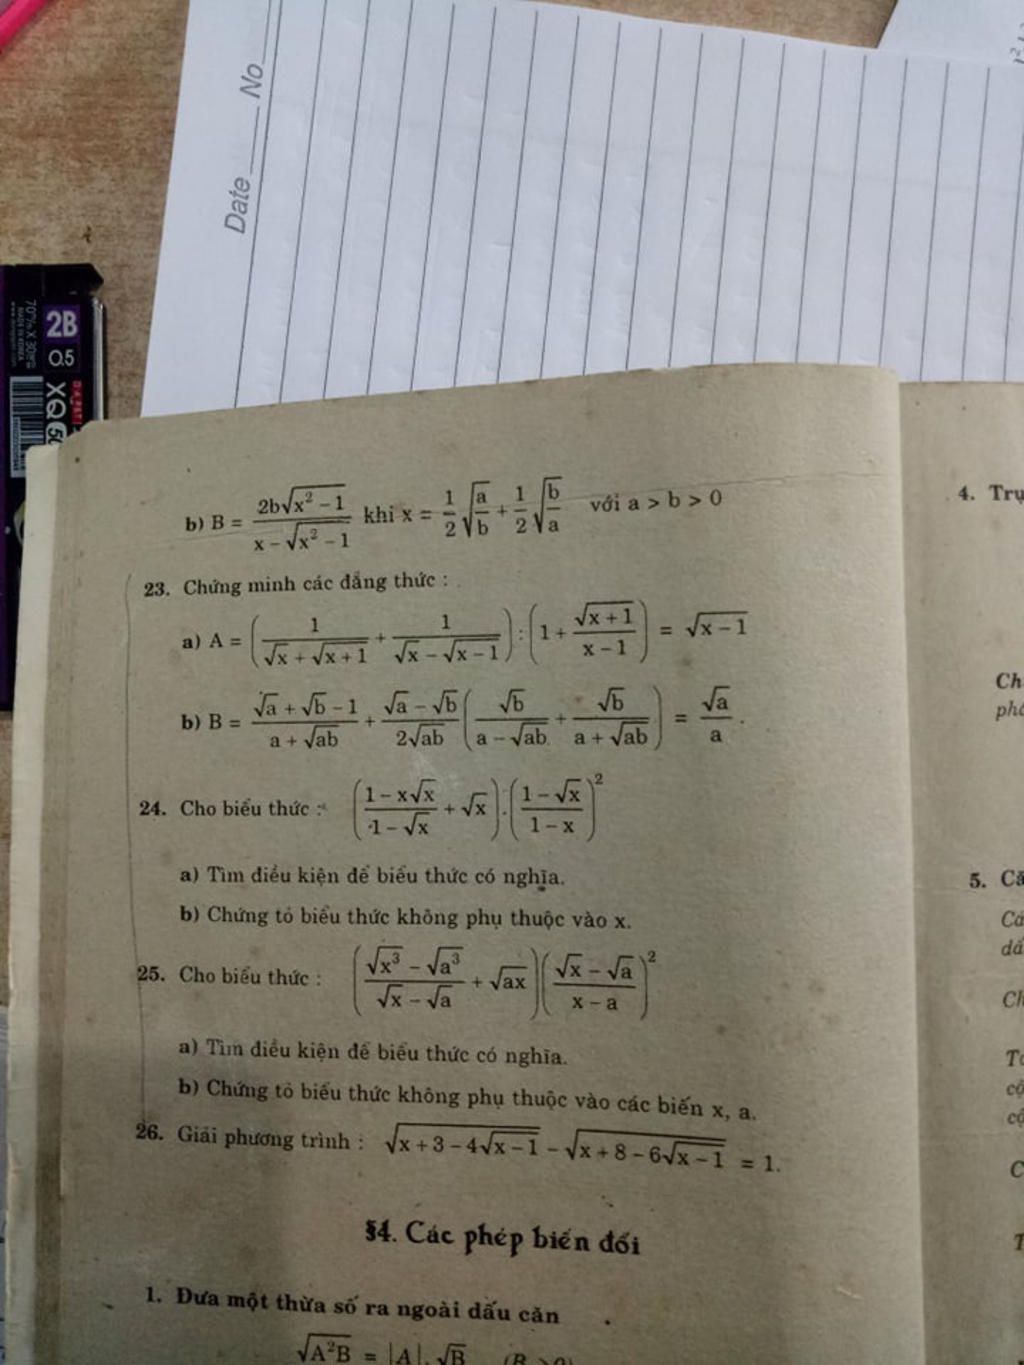 Date No
2B
0.5
70mm X 30pcs
MADE IN KOREA
XQ
b) B = \frac{2b\sqrt{x^2 - 1}}{x - \sqrt{x^2 - 1}} khi x = \frac{1}{2}\sqrt{\frac{a}{b}} + \frac{1}{2}\sqrt{\frac{b}{a}} với a > b > 0
23. Chứng minh các đẳng thức :
a) A = \left(\frac{1}{\sqrt{x} + \sqrt{x + 1}} + \frac{1}{\sqrt{x} - \sqrt{x - 1}}\right) : \left(1 + \frac{\sqrt{x + 1}}{x - 1}\right) = \sqrt{x - 1}
b) B = \frac{\sqrt{a} + \sqrt{b} - 1}{a + \sqrt{ab}} + \frac{\sqrt{a} - \sqrt{b}}{2\sqrt{ab}} \left(\frac{\sqrt{b}}{a - \sqrt{ab}} + \frac{\sqrt{b}}{a + \sqrt{ab}}\right) = \frac{\sqrt{a}}{a} .
24. Cho biểu thức : \left(\frac{1 - x\sqrt{x}}{1 - \sqrt{x}} + \sqrt{x}\right) . \left(\frac{1 - \sqrt{x}}{1 - x}\right)^2
a) Tìm điều kiện để biểu thức có nghĩa.
b) Chứng tỏ biểu thức không phụ thuộc vào x.
25. Cho biểu thức : \left(\frac{\sqrt{x^3} - \sqrt{a^3}}{\sqrt{x} - \sqrt{a}} + \sqrt{ax}\right) \left(\frac{\sqrt{x} - \sqrt{a}}{x - a}\right)^2
a) Tìm điều kiện để biểu thức có nghĩa.
b) Chứng tỏ biểu thức không phụ thuộc vào các biến x, a.
26. Giải phương trình : \sqrt{x + 3 - 4\sqrt{x - 1}} - \sqrt{x + 8 - 6\sqrt{x - 1}} = 1.
§4. Các phép biến đổi
1. Đưa một thừa số ra ngoài dấu căn
\sqrt{A^2B} = |A|.\sqrt{B}
4. Trụ
Ch
5. Că